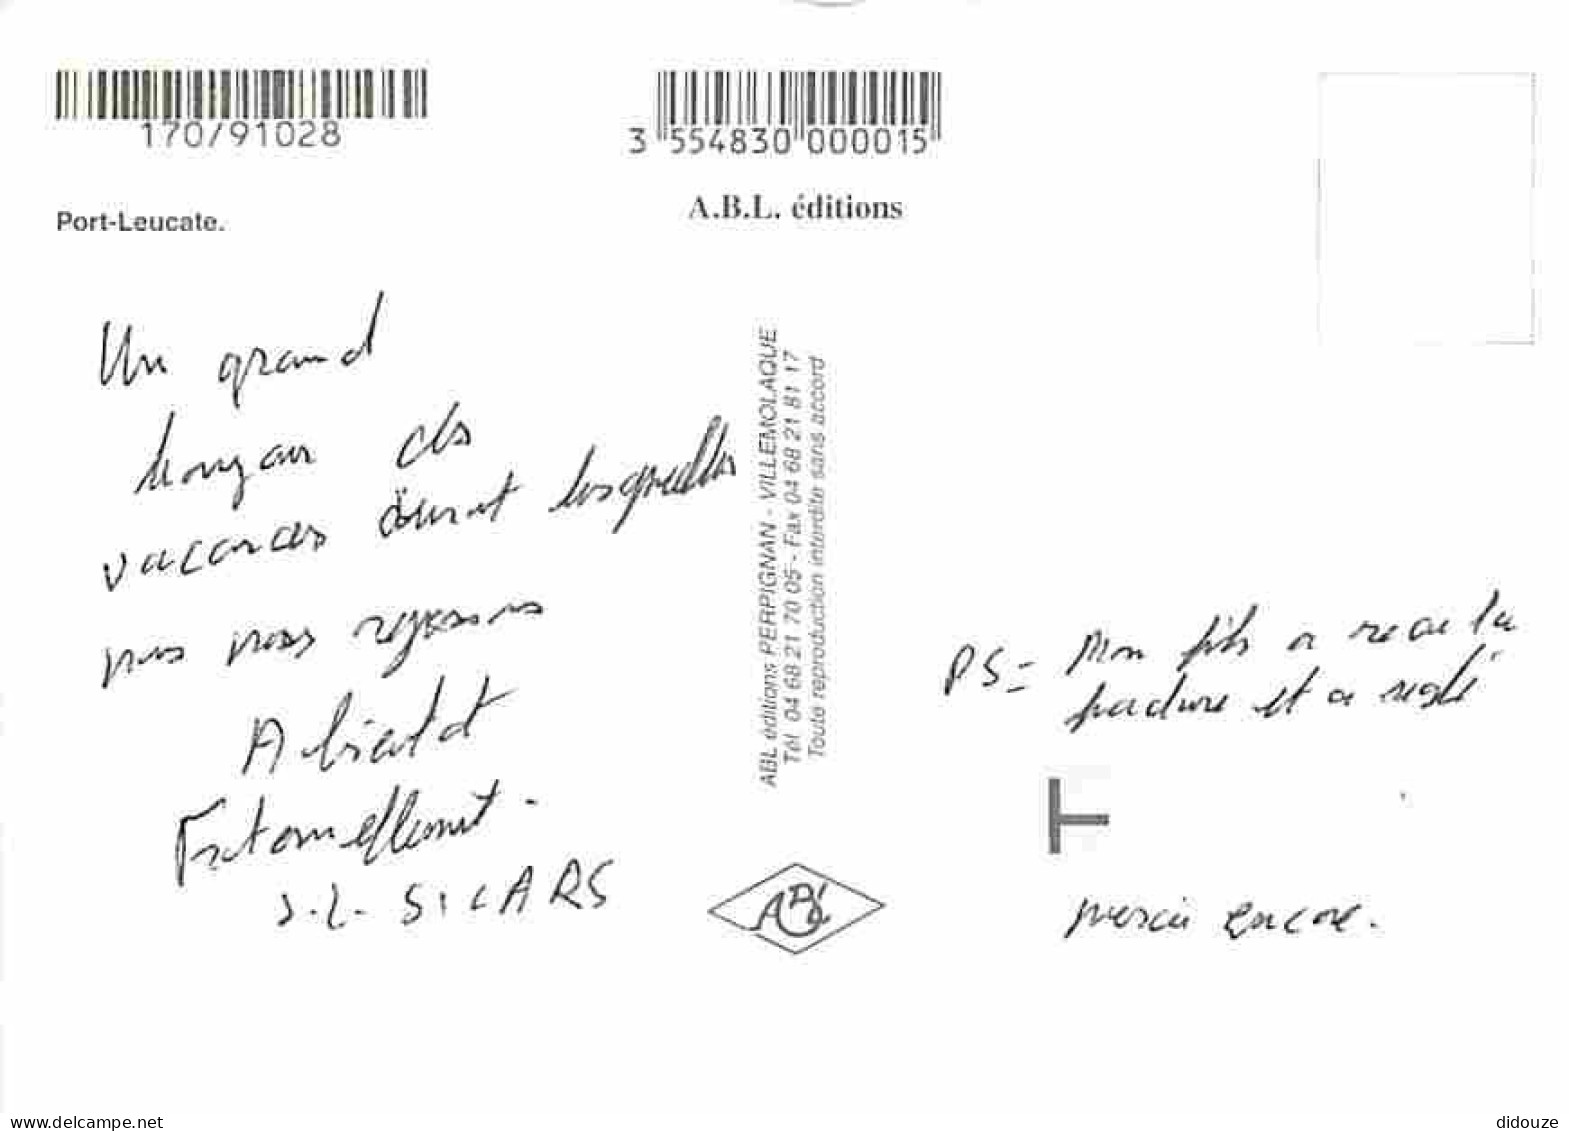 170/91028
3 554830 000015
A.B.L. éditions
Port-Leucate.
Un grand
bonjour des
vacances durant lesquelles
nous nous reposons
A bientôt
Fraternellement.
J.L. SICARS
ABL éditions PERPIGNAN - VILLEMOLAQUE
Tél 04 68 21 70 05 - Fax 04 68 21 81 17
Toute reproduction interdite sans accord
PS = Mon fils a recu la
facture et a reglé
merci encore.
ABL
www.delcampe.net
didouze